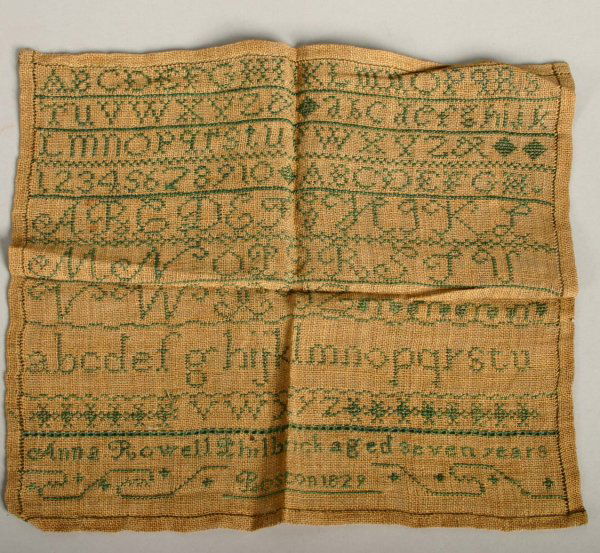 ABCDEFGHIKLMNOPQRS
TUVWXYZ& abcdefghijk
lmnopqrstuvwxyz&
12345678910 ABCDEFGH
ABCDEFGHIJKL
MNOPQRSTU
VW
abcdefghijklmnopqrstu
vwxyz
Anna Rowell Philbrick aged seven years
Boston 1829